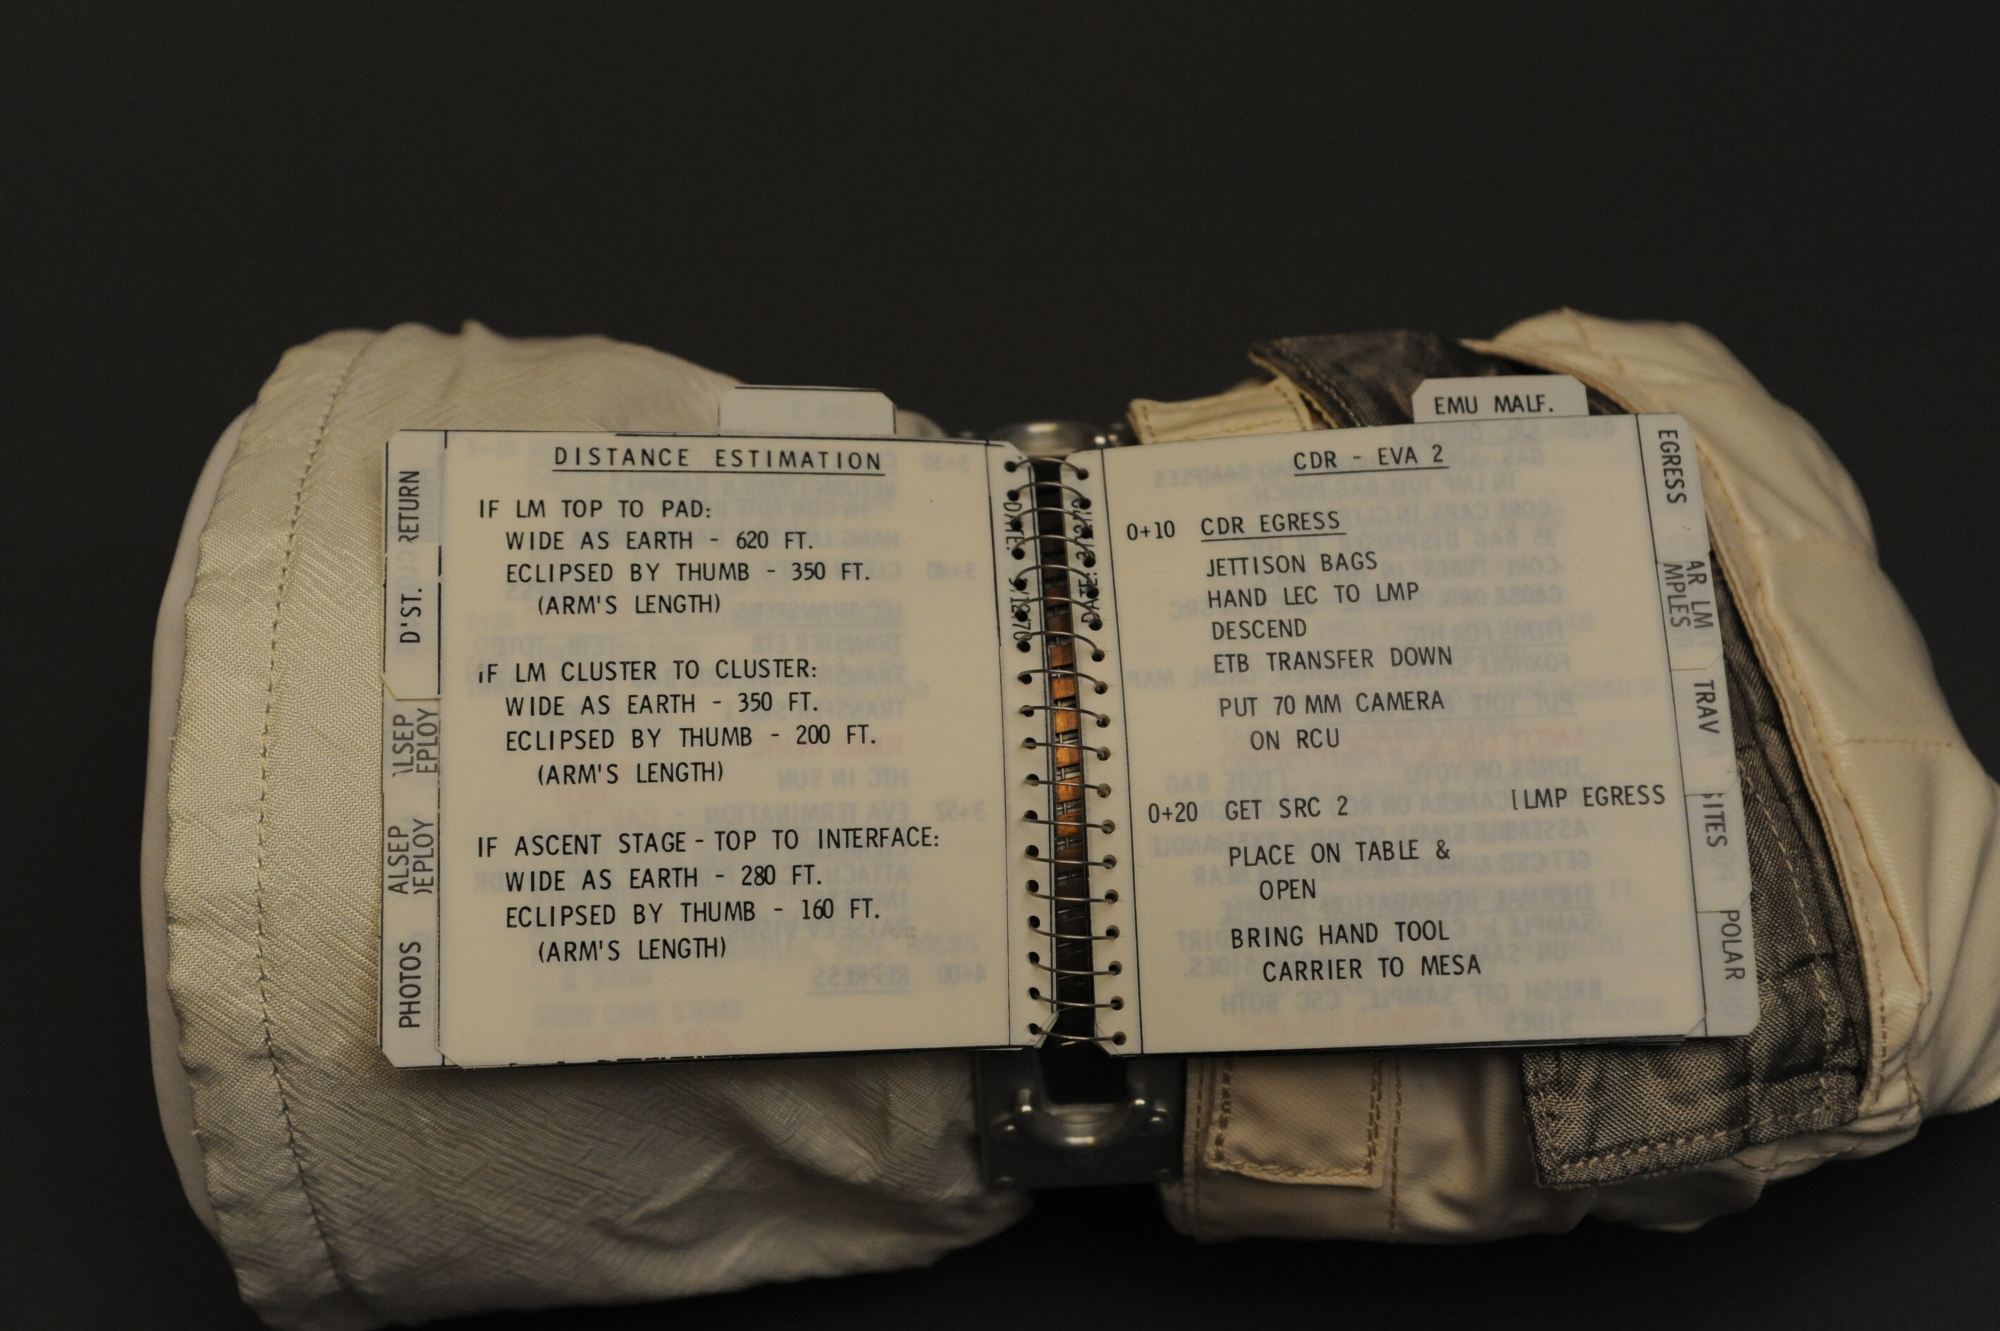 DISTANCE ESTIMATION
IF LM TOP TO PAD:
WIDE AS EARTH - 620 FT.
ECLIPSED BY THUMB - 350 FT.
(ARM'S LENGTH)
IF LM CLUSTER TO CLUSTER:
WIDE AS EARTH - 350 FT.
ECLIPSED BY THUMB - 200 FT.
(ARM'S LENGTH)
IF ASCENT STAGE - TOP TO INTERFACE:
WIDE AS EARTH - 280 FT.
ECLIPSED BY THUMB - 160 FT.
(ARM'S LENGTH)
RETURN
D'ST.
ALSEP
PHOTOS
DATE:
DATE:
EMU MALF.
CDR - EVA 2
0+10 CDR EGRESS
JETTISON BAGS
HAND LEC TO LMP
DESCEND
ETB TRANSFER DOWN
PUT 70 MM CAMERA
ON RCU
0+20 GET SRC 2 [LMP EGRESS
PLACE ON TABLE &
OPEN
BRING HAND TOOL
CARRIER TO MESA
EGRESS
AR LM
MPLES
TRAV
ITES
POLAR